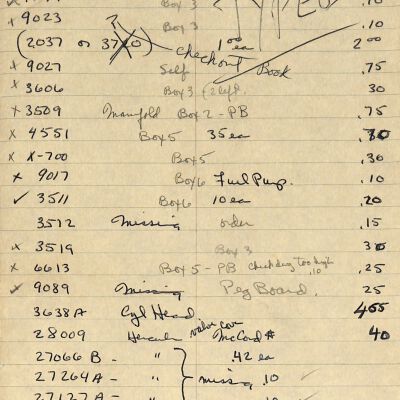 Box 3 .10
x 9023 ? Box 3 .10
(2037 or 3720) - checkout 1.00 ea 2.00
+ 9027 Self Book .75
x 3606 Box 3 (2 left. 30
x 3509 Manifold Box 2 - PB .75
x 4551 Box 5 35 ea .70
x X-700 Box 5 .30
x 9017 Box 6 Fuel Pump. .10
✓ 3511 Box 6 10 ea .20
3512 Missing order .15
x 3519 Box 3 30
x 6613 Box 5 - PB Check ding too high .10 .25
9089 Missing Peg Board. .25
3638A Cyl Head 455
28009 Hercules valve cov McCord # 40
27066 B - " .42 ea
27264A - " missing .10
27127A - "